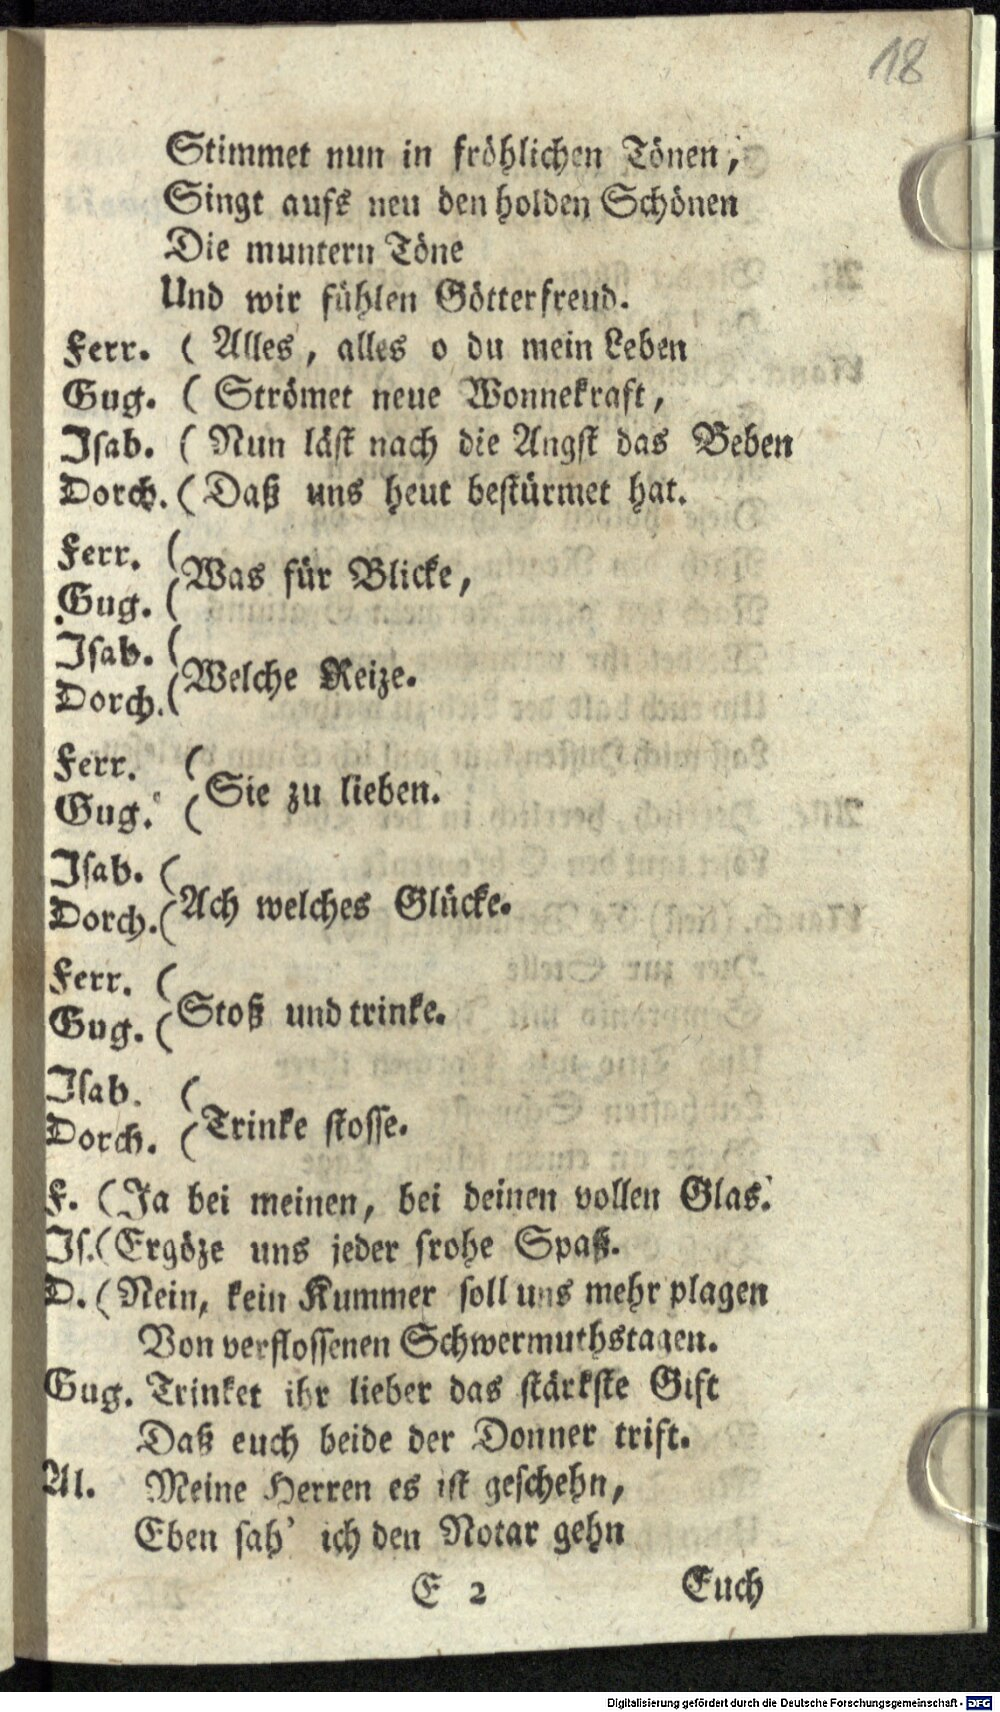 18
Stimmet nun in fröhlichen Tönen,
Singt aufs neu den holden Schönen
Die muntern Töne
Und wir fühlen Götterfreud.
Ferr. ( Alles, alles o du mein Leben
Gug. ( Strömet neue Wonnekraft,
Isab. ( Nun läst nach die Angst das Beben
Dorch. ( Daß uns heut bestürmet hat.
Ferr. (
Gug. ( Was für Blicke,
Isab. (
Dorch. ( Welche Reize.
Ferr. (
Gug. ( Sie zu lieben.
Isab. (
Dorch. ( Ach welches Glücke.
Ferr. (
Gug. ( Stoß und trinke.
Isab. (
Dorch. ( Trinke stosse.
F. ( Ja bei meinen, bei deinen vollen Glas.
Is. ( Ergöze uns jeder frohe Spaß.
D. ( Nein, kein Kummer soll uns mehr plagen
Von verflossenen Schwermuthstagen.
Gug. Trinket ihr lieber das stärkste Gift
Daß euch beide der Donner trift.
Al. Meine Herren es ist geschehn,
Eben sah' ich den Notar gehn
E 2 Euch
Digitalisierung gefördert durch die Deutsche Forschungsgemeinschaft - DFG